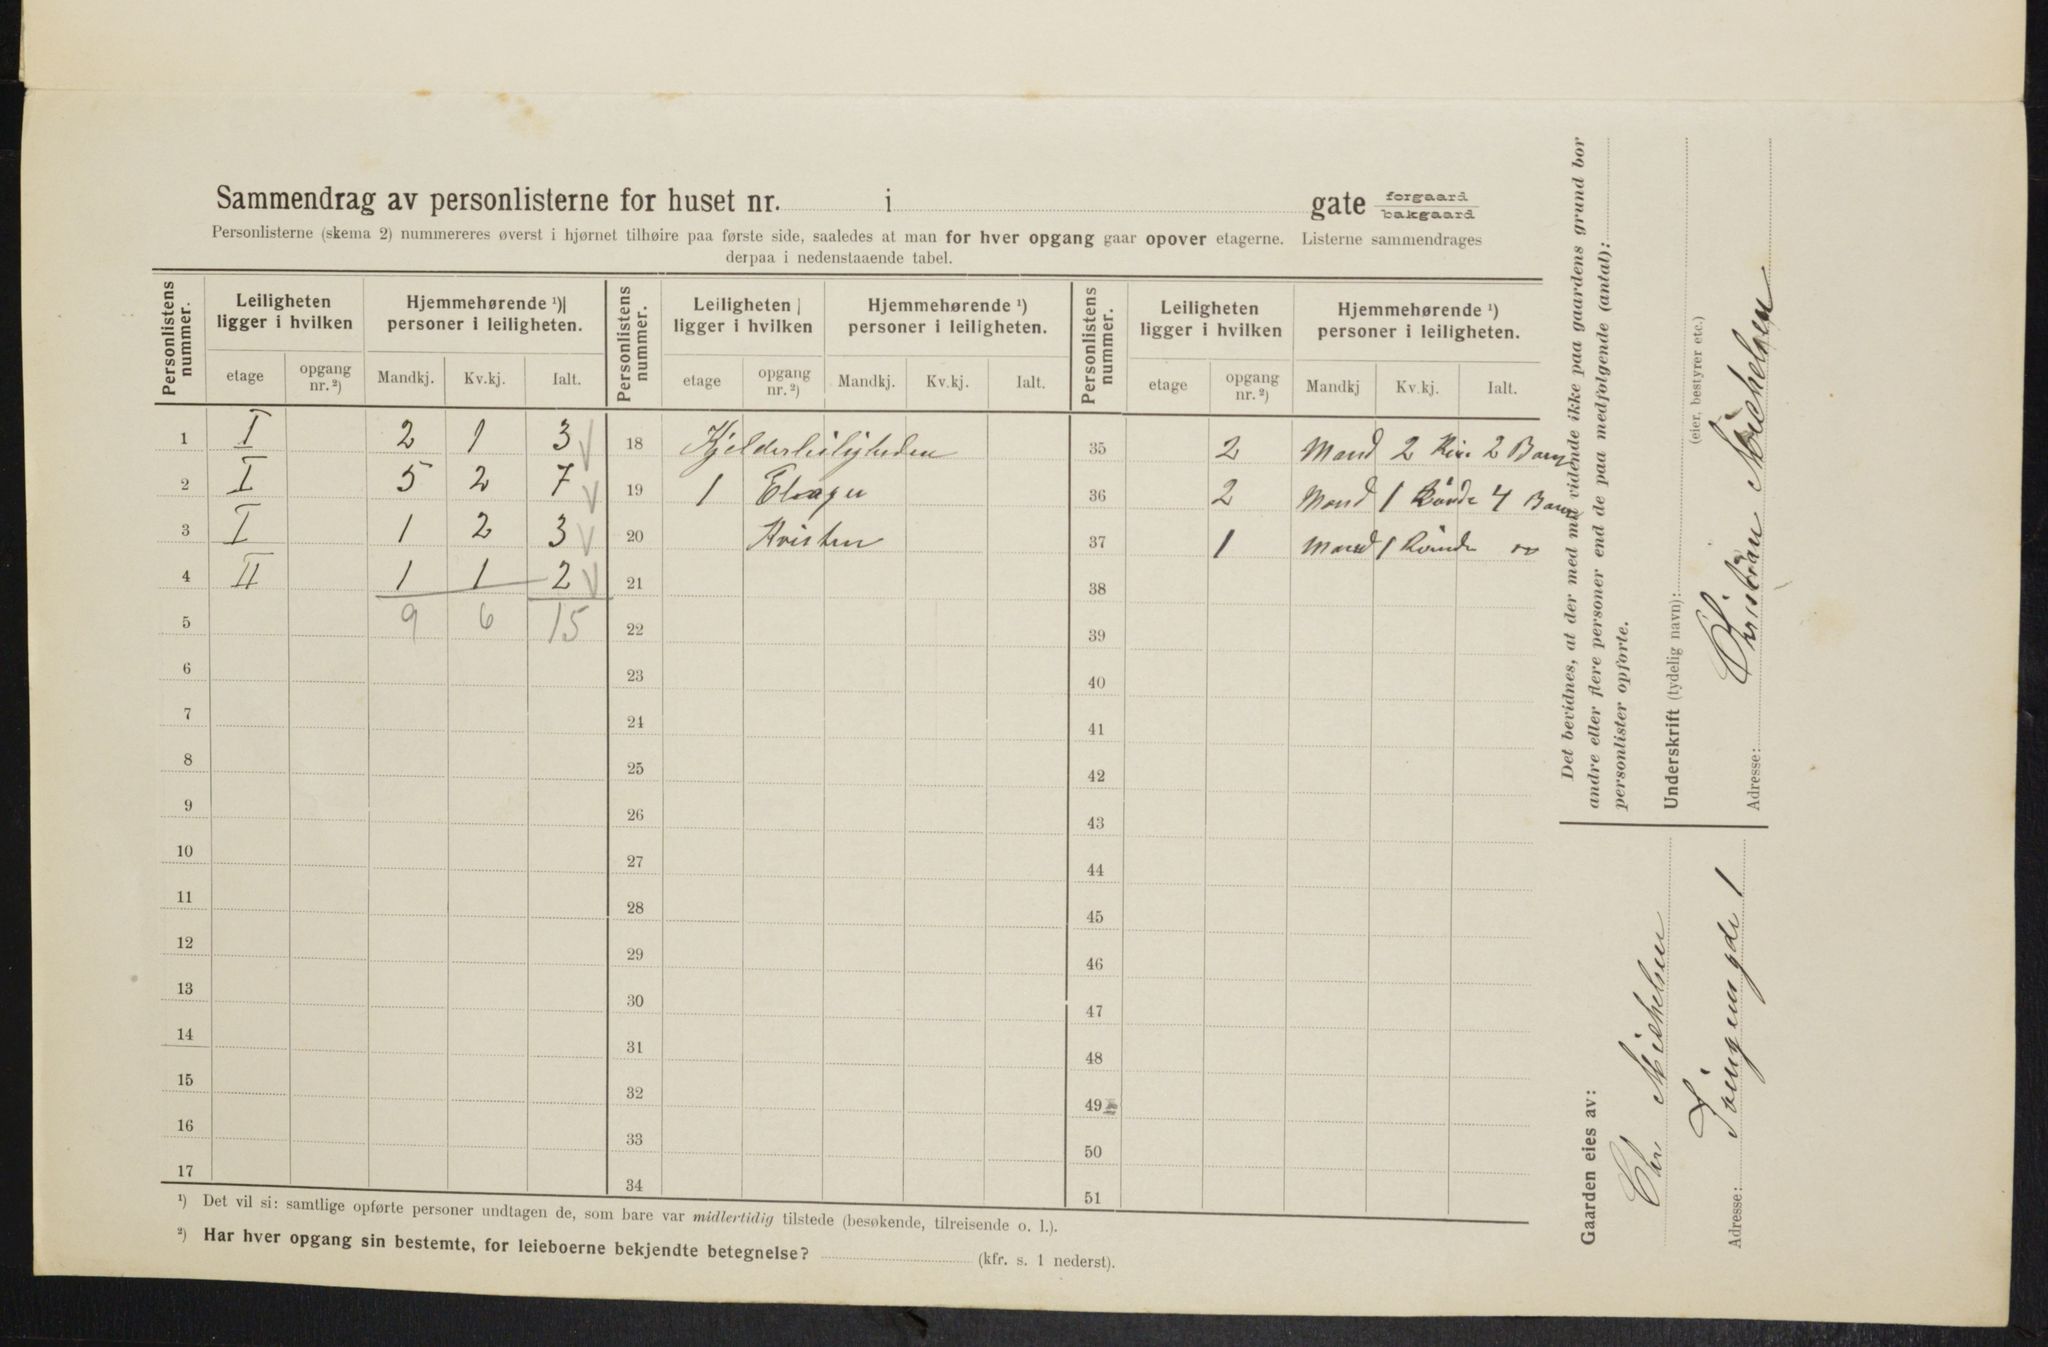 Sammendrag av personlisterne for huset nr. i gate forgaard
bakgaard
Personlisterne (skema 2) nummereres øverst i hjørnet tilhøire paa første side, saaledes at man for hver opgang gaar opover etagerne. Listerne sammendrages
derpaa i nedenstaaende tabel.
Personlistens nummer. Leiligheten ligger i hvilken Hjemmehørende ¹) personer i leiligheten. Personlistens nummer. Leiligheten ligger i hvilken Hjemmehørende ¹) personer i leiligheten. Personlistens nummer. Leiligheten ligger i hvilken Hjemmehørende ¹) personer i leiligheten.
etage opgang nr. ²) Mandkj. Kv.kj. Ialt. etage opgang nr. ²) Mandkj. Kv.kj. Ialt. etage opgang nr. ²) Mandkj Kv.kj. Ialt.
1 I 2 1 3 18 Kjelderleiligheden 35 2 Mand 2 2 Barn
2 I 5 2 7 19 1 36 2 Mand 1 Kvinde 4 Barn
3 I 1 2 3 20 Kvisten 37 1 Mand 1 Kvinde
4 II 1 1 2 21 38
5 9 6 15 22 39
6 23 40
7 24 41
8 25 42
9 26 43
10 27 44
11 28 45
12 29 46
13 30 47
14 31 48
15 32 49
16 33 50
17 34 51
¹) Det vil si: samtlige opførte personer undtagen de, som bare var midlertidig tilstede (besøkende, tilreisende o. l.).
²) Har hver opgang sin bestemte, for leieboerne bekjendte betegnelse? (kfr. s. 1 nederst).
Det bevidnes, at der med mit vidende ikke paa gaardens grund bor
andre eller flere personer end de paa medfølgende (antal):
personlister opførte.
Underskrift (tydelig navn):
(eier, bestyrer etc.)
Christian Michelsen
Adresse:
Gaarden eies av:
Chr Michelsen
Adresse: 1